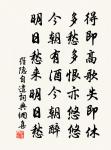 得即高歌失即休
多愁多恨亦悠悠
今朝有酒今朝醉
明日愁來明日愁
羅隱自遣詞典網意